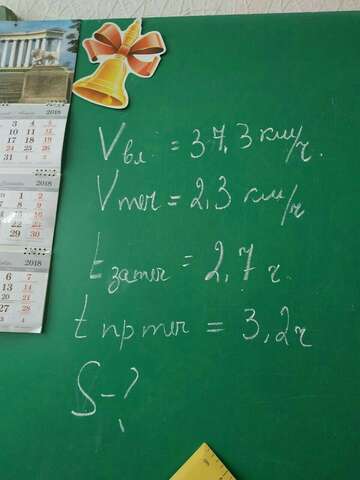 Vвл = 37,3 км/ч.
Vтеч = 2,3 км/ч
t за теч = 2,7 ч.
t пр теч = 3,2 ч
S - ?
2018
3 4 5
10 11 12
17 18 19
24 25 26
31
2018
1 2
8 9
15 16
22 23
29 30
2018
6 7
13 14
20 21
27 28